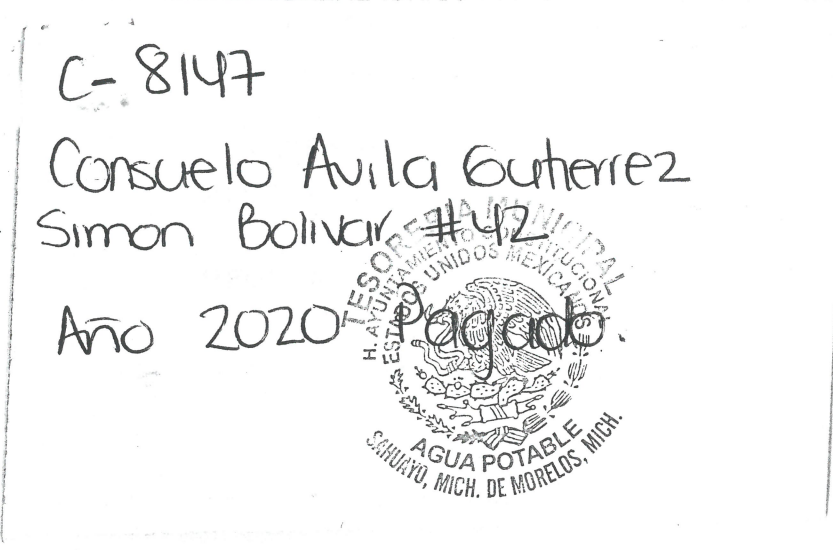 C- 8147
Consuelo Avila Gutierrez
Simon Bolivar #42
Año 2020 Pagado.
TESORERIA MUNICIPAL
H. AYUNTAMIENTO CONSTITUCIONAL
ESTADOS UNIDOS MEXICANOS
AGUA POTABLE
SAHUAYO, MICH. DE MORELOS, MICH.